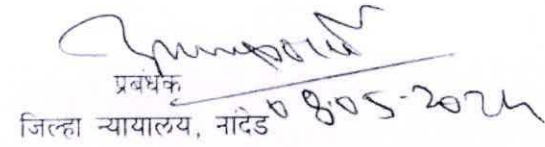 प्रबंधक
जिल्हा न्यायालय, नांदेड 08.05-2024